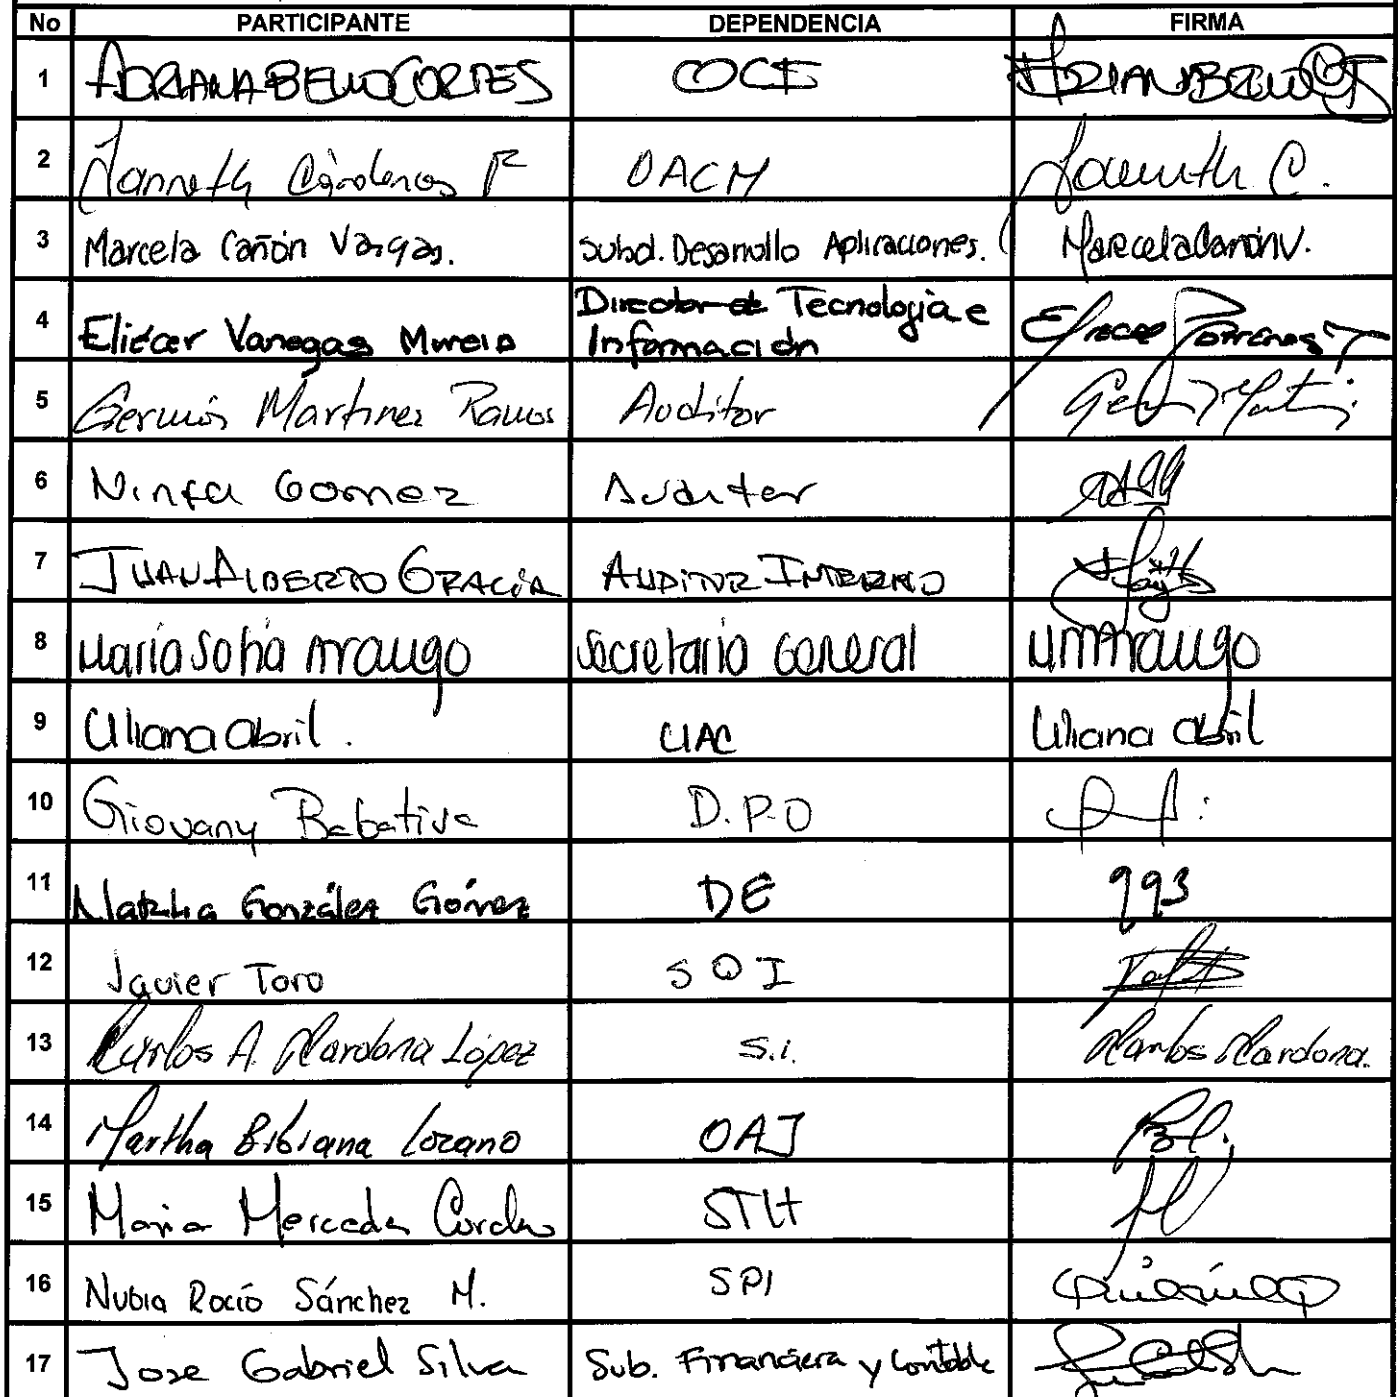 No PARTICIPANTE DEPENDENCIA FIRMA
1 ADRIANA BELLO CORTES OCI ADRIANA BELLO
2 Janneth Cárdenas F OACM Janneth C.
3 Marcela Cañón Vargas. Subd. Desarrollo Aplicaciones. Marcela Cañón V.
4 Eliécer Vanegas Murcia Director de Tecnología e
Información
5 Germán Martínez Ramos Auditor
6 Ninfa Gomez Auditor
7 JUAN ALBERTO GRACIA AUDITOR INTERNO
8 María Sofía Araugo Secretaria General Araugo
9 Liliana abril. UAC Liliana abril
10 Giovany Babativa D.P.O
11 Natalia González Gómez DE
12 Javier Toro
13 Carlos A. Cardona López S.I. Carlos Cardona.
14 Martha Bibiana Lozano OAJ
15 Maria Mercedes STH
16 Nubia Rocío Sánchez M. SPI
17 Jose Gabriel Silva Sub. Financiera y Contable